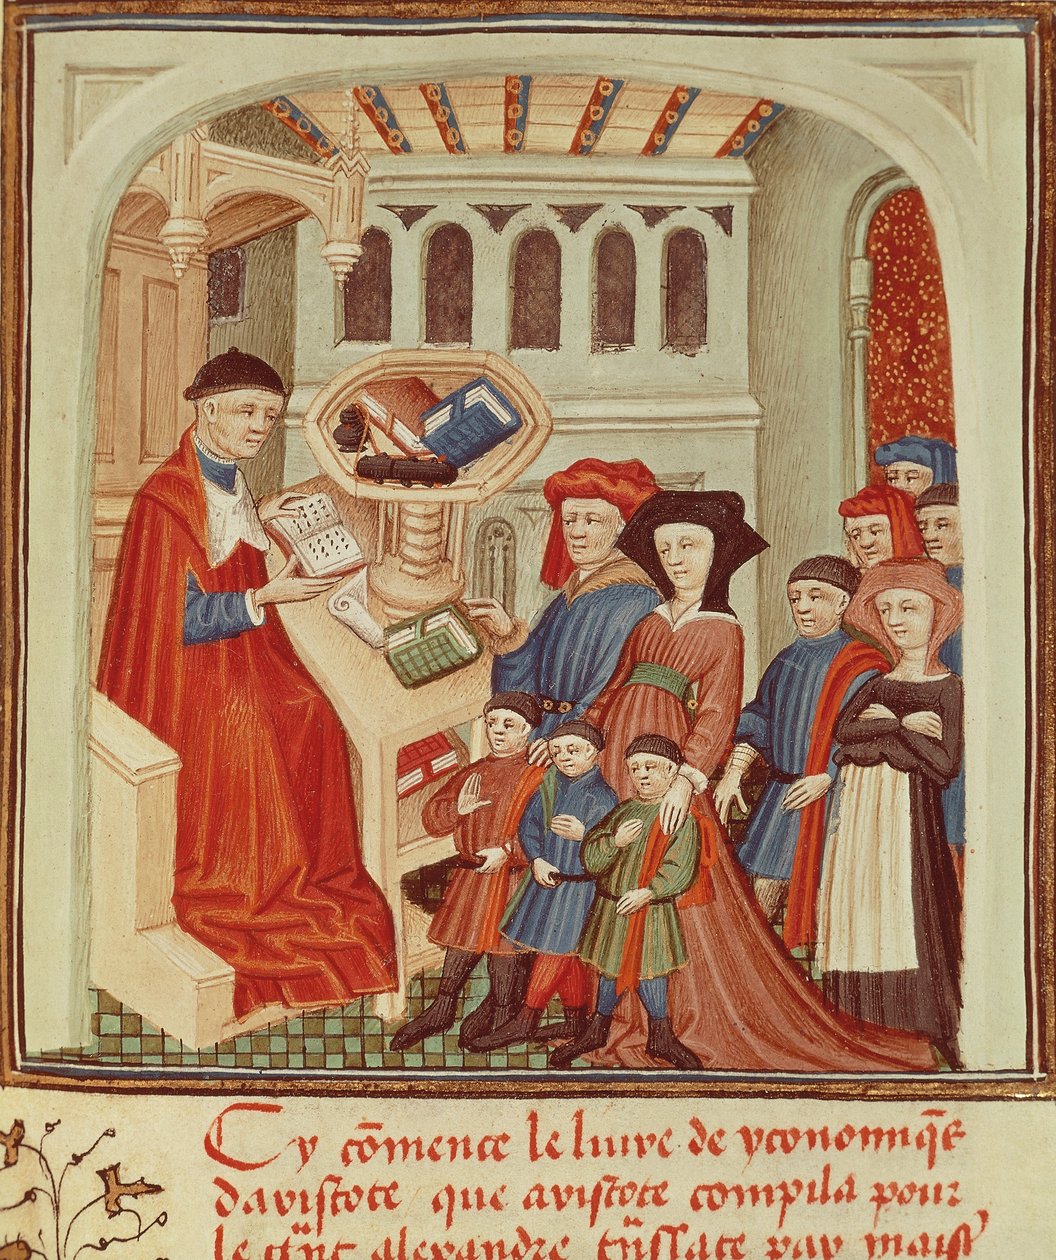 Cy cõmence le liure de yconomiq̃s
daristote que aristote compila pour
le gr̃nt alexandre trñslate par maist̾